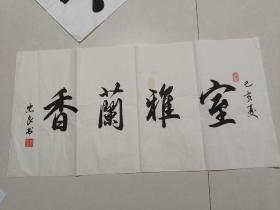 己亥夏
室雅蘭香
忠良书